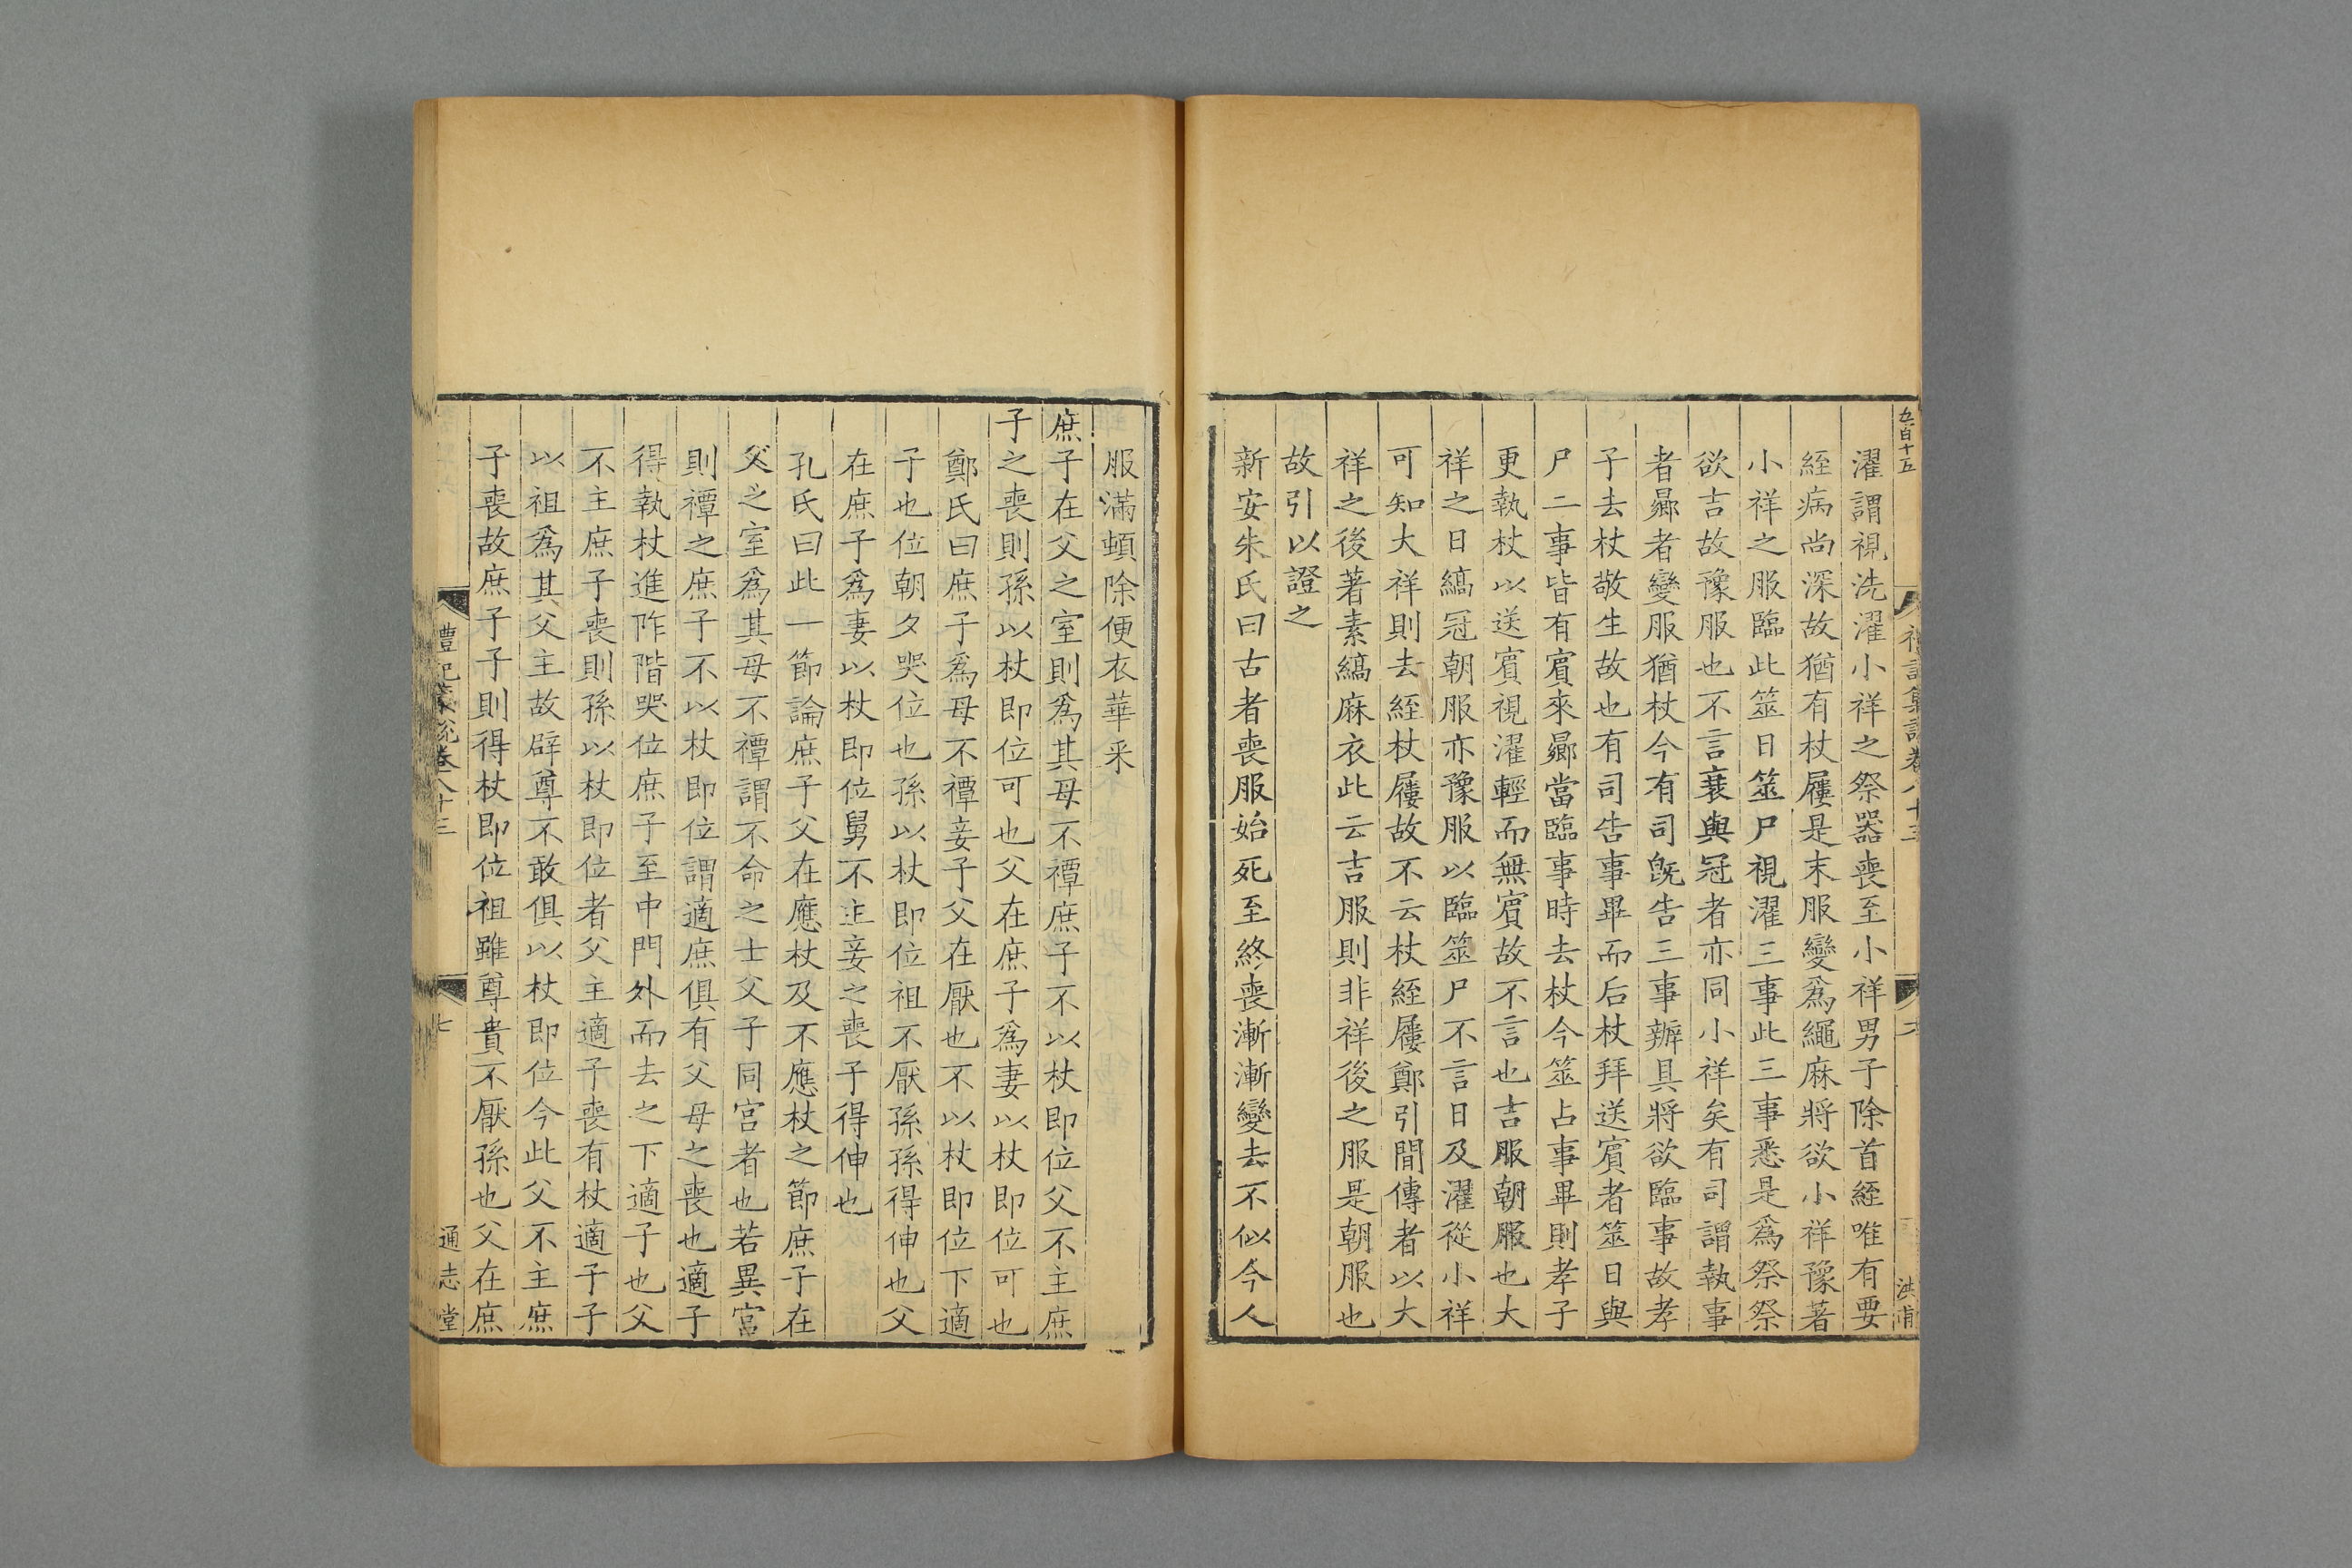 五百十五
禮記集說卷八十三
六
洪甫
濯謂視洗濯小祥之祭器喪至小祥男子除首絰唯有要
絰病尚深故猶有杖屨是末服變爲繩麻將欲小祥豫著
小祥之服臨此筮日筮尸視濯三事此三事悉是爲祭祭
欲吉故豫服也不言衰與冠者亦同小祥矣有司謂執事
者曏者變服猶杖今有司旣告三事辦具將欲臨事故孝
子去杖敬生故也有司告事畢而后杖拜送賓者筮日與
尸二事皆有賓來曏當臨事時去杖今筮占事畢則孝子
更執杖以送賓視濯輕而無賓故不言也吉服朝服也大
祥之日縞冠朝服亦豫服以臨筮尸不言日及濯從小祥
可知大祥則去絰杖屨故不云杖絰屨鄭引閒傳者以大
祥之後著素縞麻衣此云吉服則非祥後之服是朝服也
故引以證之
新安朱氏曰古者喪服始死至終喪漸漸變去不似今人
服滿頓除便衣華采
庶子在父之室則爲其母不禫庶子不以杖即位父不主庶
子之喪則孫以杖即位可也父在庶子爲妻以杖即位可也
鄭氏曰庶子爲母不禫妾子父在厭也不以杖即位下適
子也位朝夕哭位也孫以杖即位祖不厭孫孫得伸也父
在庶子爲妻以杖即位舅不主妾之喪子得伸也
孔氏曰此一節論庶子父在應杖及不應杖之節庶子在
父之室爲其母不禫謂不命之士父子同宮者也若異宮
則禫之庶子不以杖即位謂適庶俱有父母之喪也適子
得執杖進阼階哭位庶子至中門外而去之下適子也父
不主庶子喪則孫以杖即位者父主適子喪有杖適子子
以祖爲其父主故辟尊不敢俱以杖即位今此父不主庶
子喪故庶子子則得杖即位祖雖尊貴不厭孫也父在庶
禮記義疏卷八十三
七
通志堂